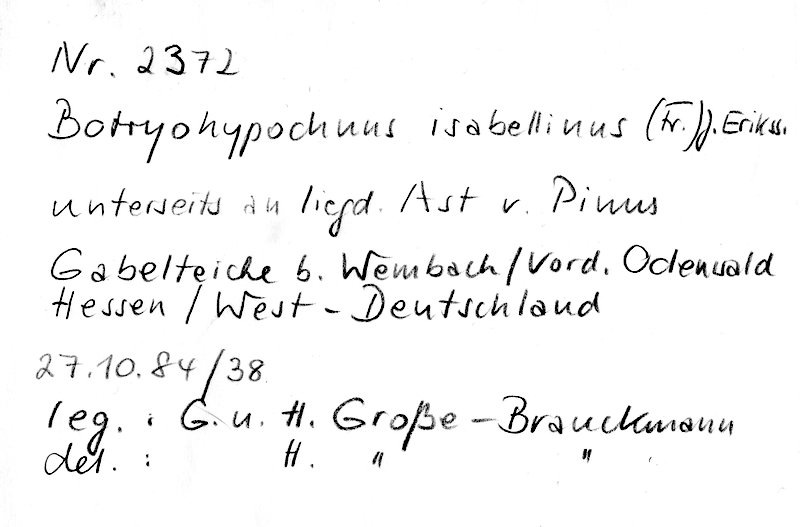 Nr. 2372
Botryohypochnus isabellinus (Fr.) J. Erikss.
unterseits an liegd. Ast v. Pinus
Gabelteiche b. Wembach/Vord. Odenwald
Hessen / West-Deutschland
27.10.84/38
leg. : G. u. H. Große-Brauckmann
det. : H. " "